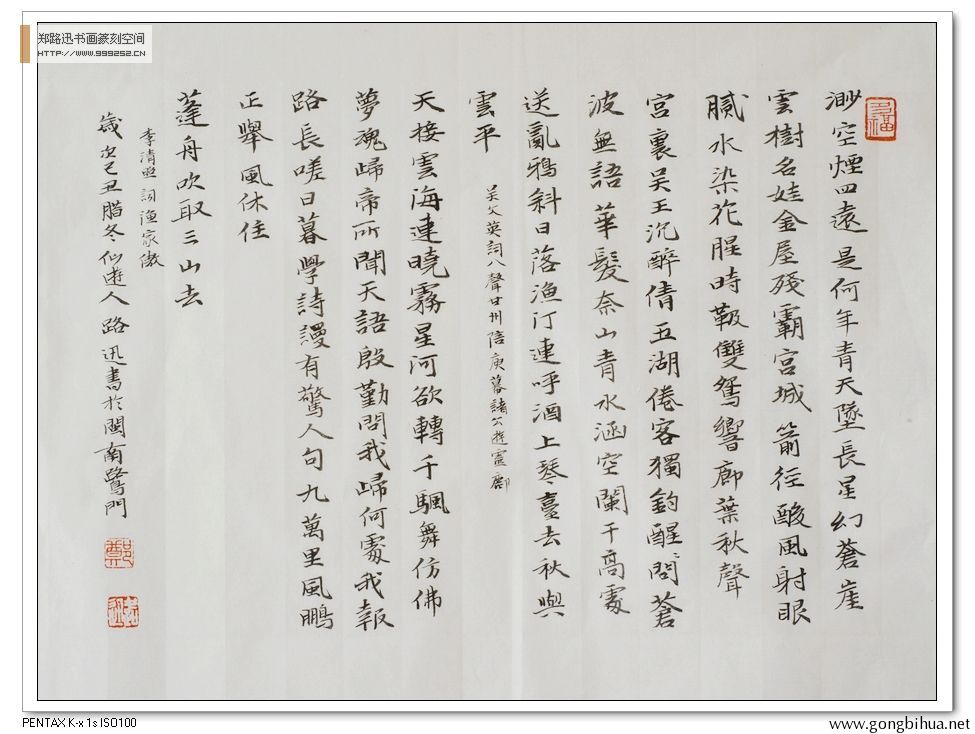 郑路迅书画篆刻空间
HTTP://WWW.999252.CN
渺空煙四遠是何年青天墜長星幻蒼崖
雲樹名娃金屋殘霸宮城箭徑酸風射眼
膩水染花腥時靸雙鴛響廊葉秋聲
宮裏吴王沉醉倩五湖倦客獨釣醒醒問蒼
波無語華髮奈山青水涵空闌干高處
送亂鴉斜日落漁汀連呼酒上琴臺去秋與
雲平
吴文英詞八聲甘州陪庾幕諸公遊靈巖
天接雲海連曉霧星河欲轉千颿舞仿佛
夢魂歸帝所聞天語殷勤問我歸何處我報
路長嗟日暮學詩謾有驚人句九萬里風鵬
正舉風休住
蓬舟吹取三山去
李清照詞漁家傲
歲次己丑腊冬似遊人路迅書於閩南鷺門
PENTAX K-x 1s ISO100
www.gongbihua.net